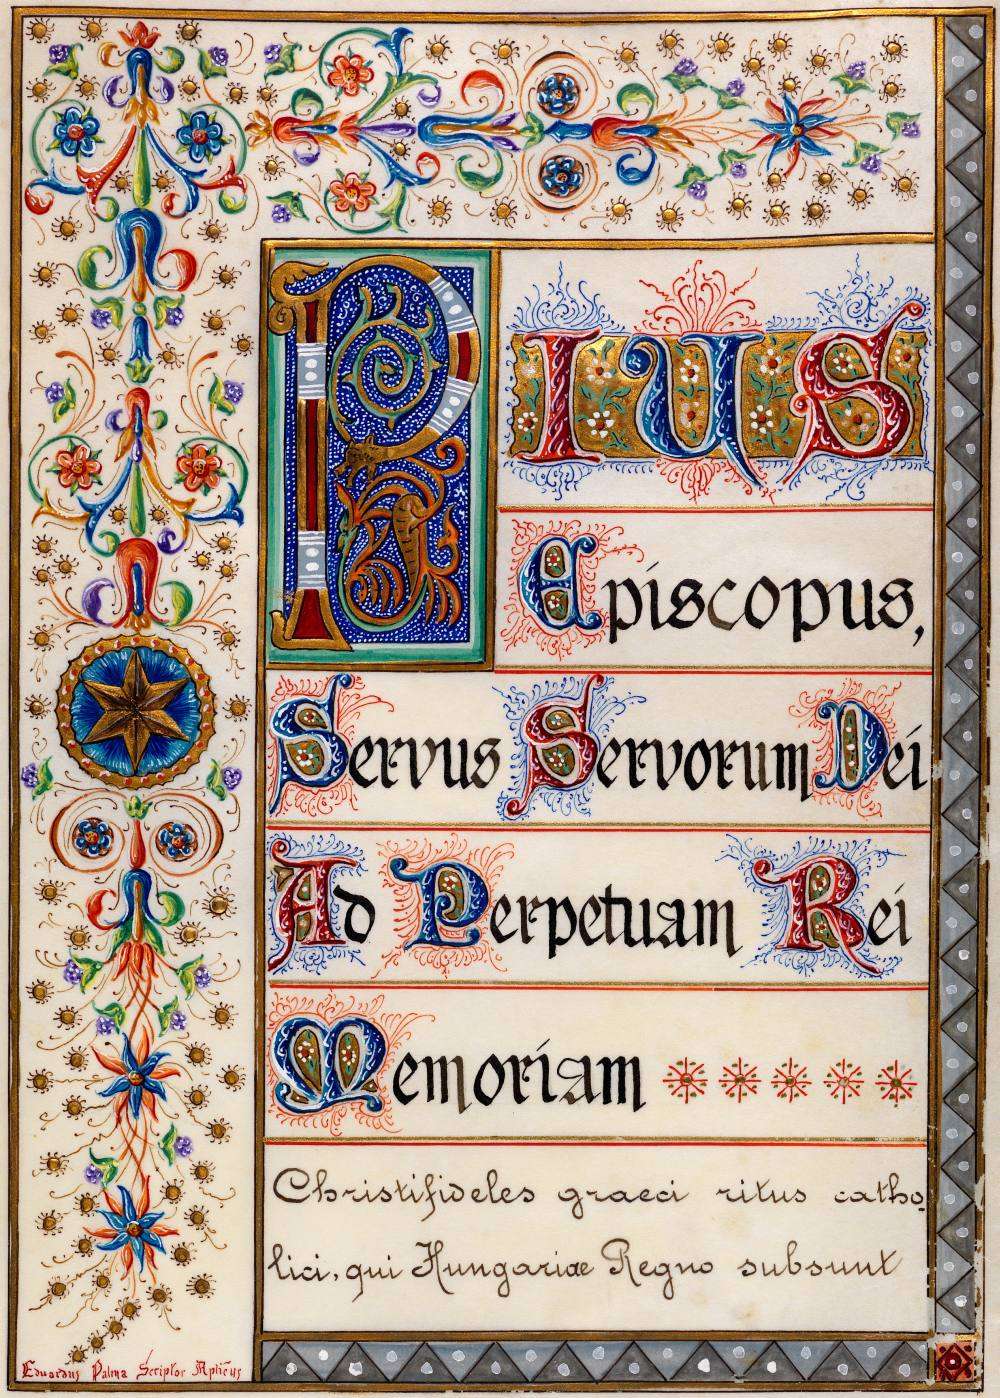 PIUS
Episcopus,
Servus Servorum Dei
Ad Perpetuam Rei
Memoriam
Christifideles graeci ritus catho
lici, qui Hungariae Regno subsunt
Eduardus Palma Scriptor Aplicus